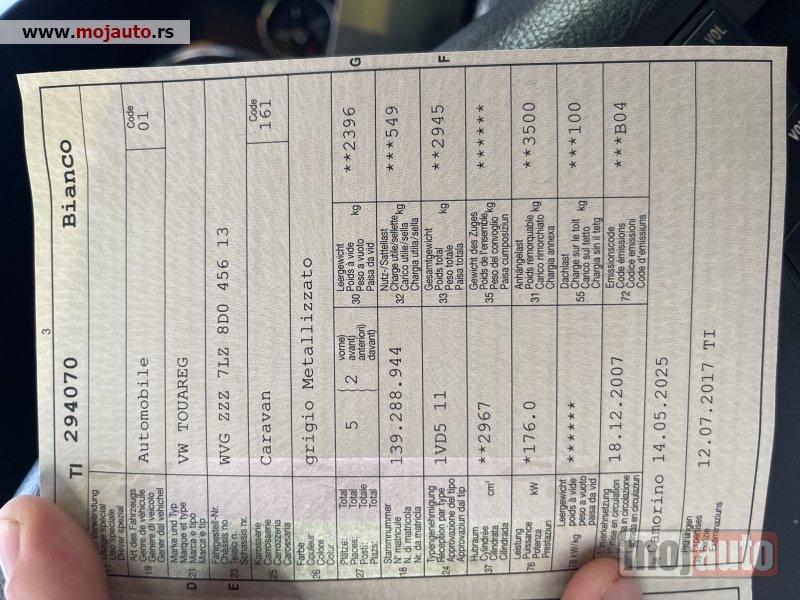 www.mojauto.rs
3
TI 294070 Bianco
17 Verwendung
Usage spécial
Uso speciale
Diever spezial
19 Art des Fahrzeugs
Genre de véhicule
Genere di veicolo
Gener dal vehichel
Automobile
Code
01
D 21 Marke und Typ
Marque et type
Marca e tipo
Marca e tip
VW TOUAREG
E 23 Fahrgestell-Nr.
Châssis no
Telaio n.
Schassis nr.
WVG ZZZ 7LZ 8D0 456 13
25 Karosserie
Carrosserie
Carrozzeria
Carossaria
Caravan
Code
161
26 Farbe
Couleur
Colore
Colur
grigio Metallizzato
27 Plätze: Total
Places: Total
Posti: Totale
Plazs: Total
5
2
vorne)
avant)
anteriori)
davant)
30 Leergewicht
Poids à vide kg
Peso a vuoto
Paisa da vid
**2396
G
18 Stammnummer
N° matricule
N. matricola
Nr. da matricla
139.288.944
32 Nutz-/Sattellast
Charge utile/sellette
Carico utile/sella kg
Chargia utila/sella
***549
24 Typengenehmigung
Réception par type
Approvazione del tipo
Approvaziun dal tip
1VD5 11
33 Gesamtgewicht
Poids total kg
Peso totale
Paisa totala
**2945
F
37 Hubraum
Cylindrée cm³
Cilindrata
Cilindrada
**2967
35 Gewicht des Zuges
Poids de l'ensemble kg
Peso del convoglio
Paisa cumposiziun
******
76 Leistung
Puissance kW
Potenza
Prestaziun
*176.0
31 Anhängelast
Poids remorquable kg
Carico rimorchiato
Chargia annexa
**3500
78 kW/kg
Leergewicht
poids à vide
peso a vuoto
paisa da vid
******
55 Dachlast
Charge sur le toit kg
Carico sul tetto
Chargia sin il tetg
***100
18.12.2007
72 Emissionscode
Code émissions
Codice emissioni
Code d'emissiuns
***B04
amorino 14.05.2025
12.07.2017 TI
VOL
mojauto